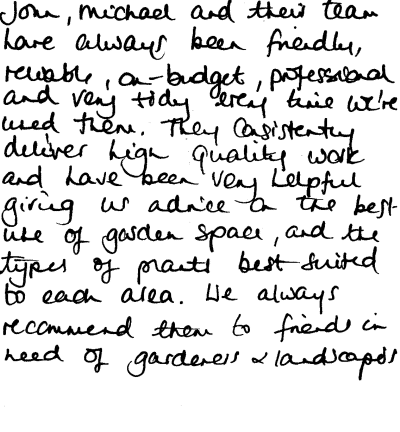 John, Michael and their team
have always been friendly,
reliable, on-budget, professional
and very tidy every time we're
used them. They Cosistently
deliver high quality work
and have been very helpful
giving us advice on the best
use of garden space, and the
types of plants best suited
to each area. We always
recommend them to friends in
need of gardeners & landscapers